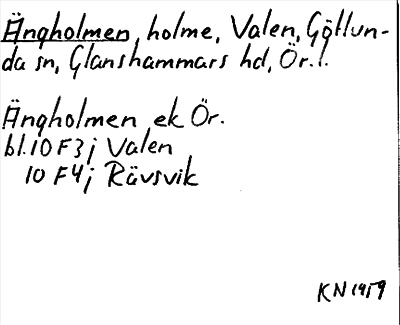 Ängholmen, holme, Valen, Götlun-
da sn, Glanshammars hd, Ör.l.
Ängholmen ek Ör.
bl.10F3j Valen
10 F4j Rävsvik
KN 1959